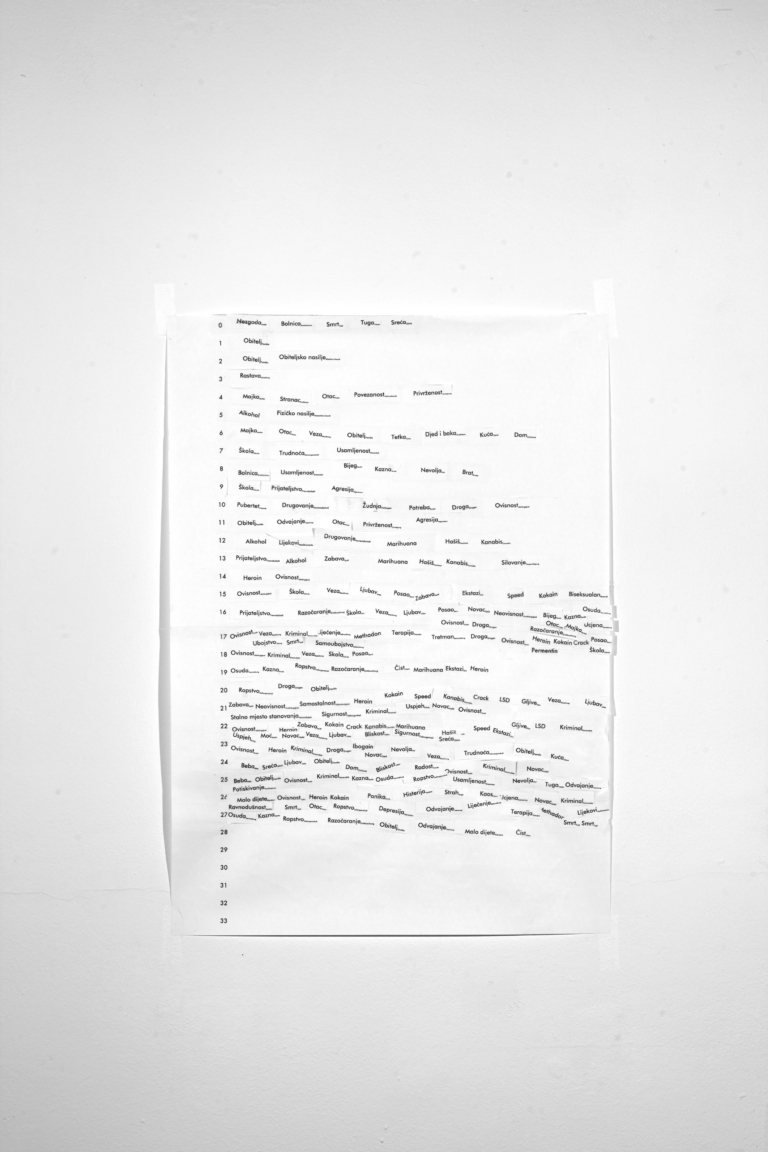 0 Nezgoda__ Bolnica__ Smrt__ Tuga__ Sreća__
1 Obitelj__
2 Obitelj__ Obiteljsko nasilje__
3 Rastava__
4 Majka__ Stranac__ Otac__ Povezanost__ Privrženost__
5 Alkohol Fizičko nasilje__
6 Majka__ Otac__ Veza__ Obitelj__ Tetka__ Djed i baka__ Kuća__ Dom__
7 Škola__ Trudnoća__ Usamljenost__
8 Bolnica__ Usamljenost__ Bijeg__ Kazna__ Nevolja__ Brat__
9 Škola__ Prijateljstvo__ Agresija__
10 Pubertet__ Drugovanje__ Žudnja__ Potreba__ Droga__ Ovisnost__
11 Obitelj__ Odvajanje__ Otac__ Privrženost__ Agresija__
12 Alkohol Lijekovi__ Drugovanje__ Marihuana Hašiš__ Kanabis__
13 Prijateljstvo__ Alkohol Zabava__ Marihuana Hašiš__ Kanabis__ Silovanje__
14 Heroin Ovisnost__
15 Ovisnost__ Škola__ Veza__ Ljubav__ Posao__ Zabava__ Ekstazi__ Speed Kokain Biseksualan__
16 Prijateljstvo__ Razočaranje__ Škola__ Veza__ Ljubav__ Posao__ Novac__ Neovisnost__ Bijeg__ Kazna__ Osuda__
Ovisnost__ Droga__ Otac__ Majka__ Ucjena__
Razočaranje__
17 Ovisnost__ Veza__ Kriminal__ Liječenje__ Methadon Terapija__ Tretman__ Droga__ Ovisnost__ Heroin Kokain Crack Posao__
Ubojstvo__ Smrt__ Samoubojstvo__ Fermentin Škola__
18 Ovisnost__ Kriminal__ Veza__ Škola__ Posao__
19 Osuda__ Kazna__ Ropstvo__ Razočaranje__ Čist__ Marihuana Ekstazi__ Heroin
20 Ropstvo__ Droga__ Obitelj__
21 Zabava__ Neovisnost__ Samostalnost__ Heroin Kokain Speed Kanabis__ Crack LSD Gljive__ Veza__ Ljubav__
Stalno mjesto stanovanja__ Sigurnost__ Kriminal__ Uspjeh__ Novac__ Ovisnost__
22 Ovisnost__ Heroin Zabava__ Kokain Crack Kanabis__ Marihuana Hašiš__ Speed Ekstazi__ Gljive__ LSD Kriminal__
Uspjeh__ Moć__ Novac__ Veza__ Ljubav__ Bliskost__ Sigurnost__ Sreća__
23 Ovisnost__ Heroin Kriminal__ Droga__ Ibogain Novac__ Nevolja__ Veza__ Trudnoća__ Obitelj__ Kuća__
24 Beba__ Sreća__ Ljubav__ Obitelj__ Dom__ Bliskost__ Radost__ Ovisnost__ Kriminal__ Novac__
25 Beba__ Obitelj__ Ovisnost__ Kriminal__ Kazna__ Osuda__ Ropstvo__ Usamljenost__ Nevolja__ Tuga__ Odvajanje__
Potiskivanje__
26 Malo dijete__ Ovisnost__ Heroin Kokain Panika__ Histerija__ Strah__ Kaos__ Ucjena__ Novac__ Kriminal__
Ravnodušnost__ Smrt__ Otac__ Ropstvo__ Depresija__ Odvajanje__ Liječenje__ Terapija__ Methadon Lijekovi__
Smrt__ Smrt__
27 Osuda__ Kazna__ Ropstvo__ Razočaranje__ Obitelj__ Odvajanje__ Malo dijete__ Čist__
28
29
30
31
32
33